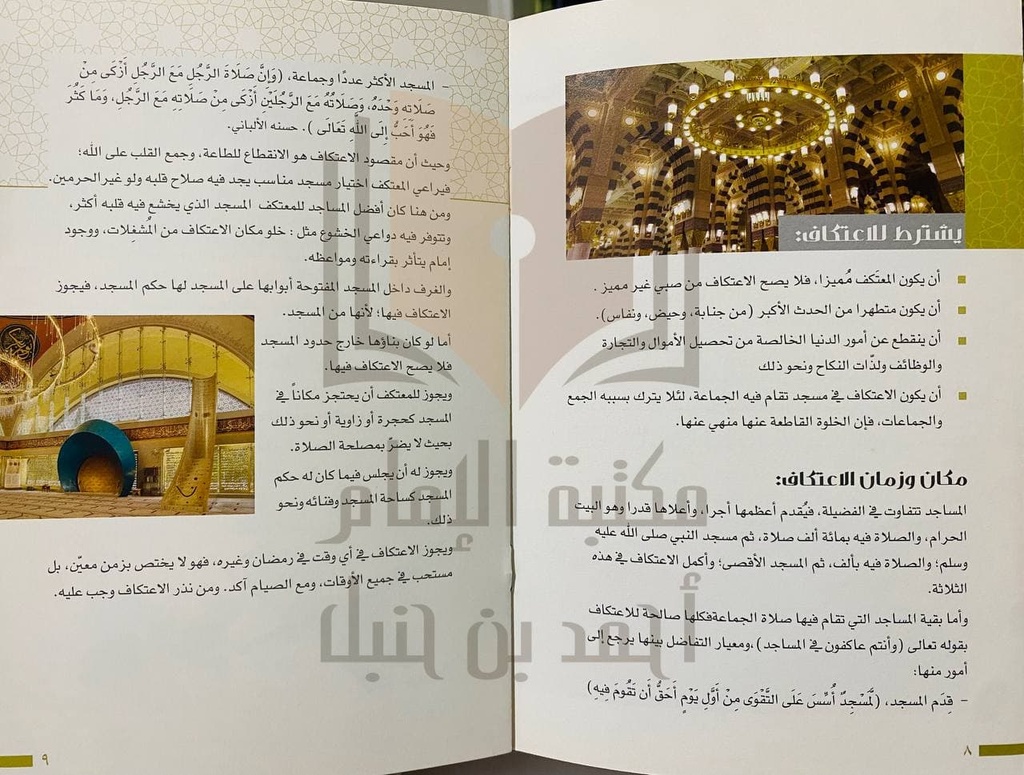 يشترط للاعتكاف:
أن يكون المعتَكف مُميزا، فلا يصح الاعتكاف من صبي غير مميز .
أن يكون متطهرا من الحدث الأكبر (من جنابة، وحيض، ونفاس).
أن ينقطع عن أمور الدنيا الخالصة من تحصيل الأموال والتجارة
والوظائف ولذّات النكاح ونحو ذلك
أن يكون الاعتكاف في مسجد تقام فيه الجماعة، لئلا يترك بسببه الجمع
والجماعات، فإن الخلوة القاطعة عنها منهي عنها.
مكان وزمان الاعتكاف:
المساجد تتفاوت في الفضيلة، فيُقدم أعظمها أجرا، وأعلاها قدرا وهو البيت
الحرام، والصلاة فيه بمائة ألف صلاة، ثم مسجد النبي صلى الله عليه
وسلم؛ والصلاة فيه بألف، ثم المسجد الأقصى؛ وأكمل الاعتكاف في هذه
الثلاثة.
وأما بقية المساجد التي تقام فيها صلاة الجماعةفكلها صالحة للاعتكاف
بقوله تعالى (وأنتم عاكفون في المساجد )،ومعيار التفاضل بينها يرجع إلى
أمور منها:
- قِدَم المسجد، (لَّمَسْجِدٌ أُسِّسَ عَلَى التَّقْوَى مِنْ أَوَّلِ يَوْمٍ أَحَقُّ أَن تَقُومَ فِيهِ)
٨
- المسجد الأكثر عددًا وجماعة، (وَإِنَّ صَلَاةَ الرَّجُلِ مَعَ الرَّجُلِ أَزْكَى مِنْ
صَلَاتِهِ وَحْدَهُ، وَصَلَاتُهُ مَعَ الرَّجُلَيْنِ أَزْكَى مِنْ صَلَاتِهِ مَعَ الرَّجُلِ، وَمَا كَثُرَ
فَهُوَ أَحَبُّ إِلَى اللهِ تَعَالَى ). حسنه الألباني.
وحيث أن مقصود الاعتكاف هو الانقطاع للطاعة، وجمع القلب على الله؛
فيراعي المعتكف اختيار مسجد مناسب يجد فيه صلاح قلبه ولو غير الحرمين.
ومن هنا كان أفضل المساجد للمعتكف المسجد الذي يخشع فيه قلبه أكثر،
وتتوفر فيه دواعي الخشوع مثل : خلو مكان الاعتكاف من المُشغِلات، ووجود
إمام يتأثر بقراءته ومواعظه.
والغرف داخل المسجد المفتوحة أبوابها على المسجد لها حكم المسجد، فيجوز
الاعتكاف فيها؛ لأنها من المسجد.
أما لو كان بناؤها خارج حدود المسجد
فلا يصح الاعتكاف فيها.
ويجوز للمعتكف أن يحتجز مكاناً في
المسجد كحجرة أو زاوية أو نحو ذلك
بحيث لا يضرّ بمصلحة الصلاة.
ويجوز له أن يجلس فيما كان له حكم
المسجد كساحة المسجد وفنائه ونحو
ذلك.
ويجوز الاعتكاف في أي وقت في رمضان وغيره، فهو لا يختص بزمن معيّن، بل
مستحب في جميع الأوقات، ومع الصيام آكد. ومن نذر الاعتكاف وجب عليه.
٩
مكتبة الإمام
أحمد بن حنبل